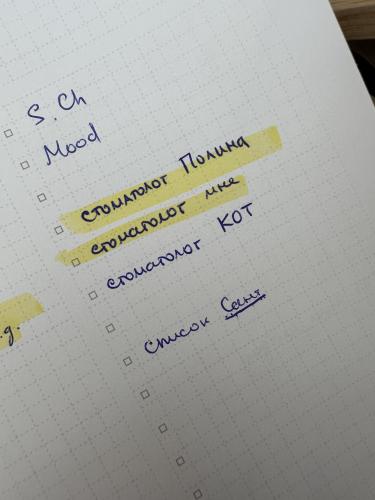 S. Ch
Mood
стоматолог Полина
стоматолог мне
стоматолог КОТ
.д.
список Сент